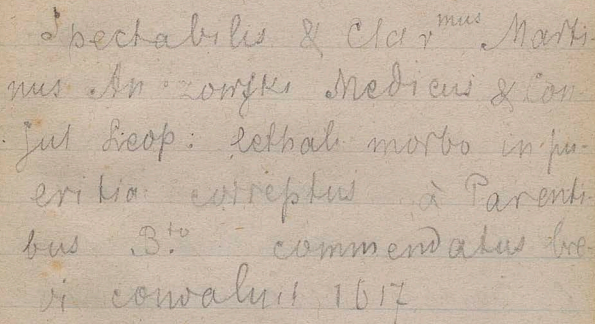 Spectabilis & Clarmus Marti-
nus An zowski Medicus & Con-
sul Leop: lethali morbo in pu-
eritia correptus à Parenti-
bus B.to commendatus bre-
vi convaluit 1617